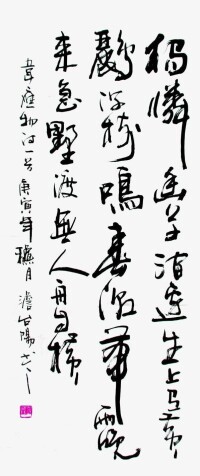 獨憐幽草澗邊生上有黃
鸝深樹鳴春潮帶雨晚
来急野渡無人舟自橫
韋應物诗一首庚寅年月澹台陽书